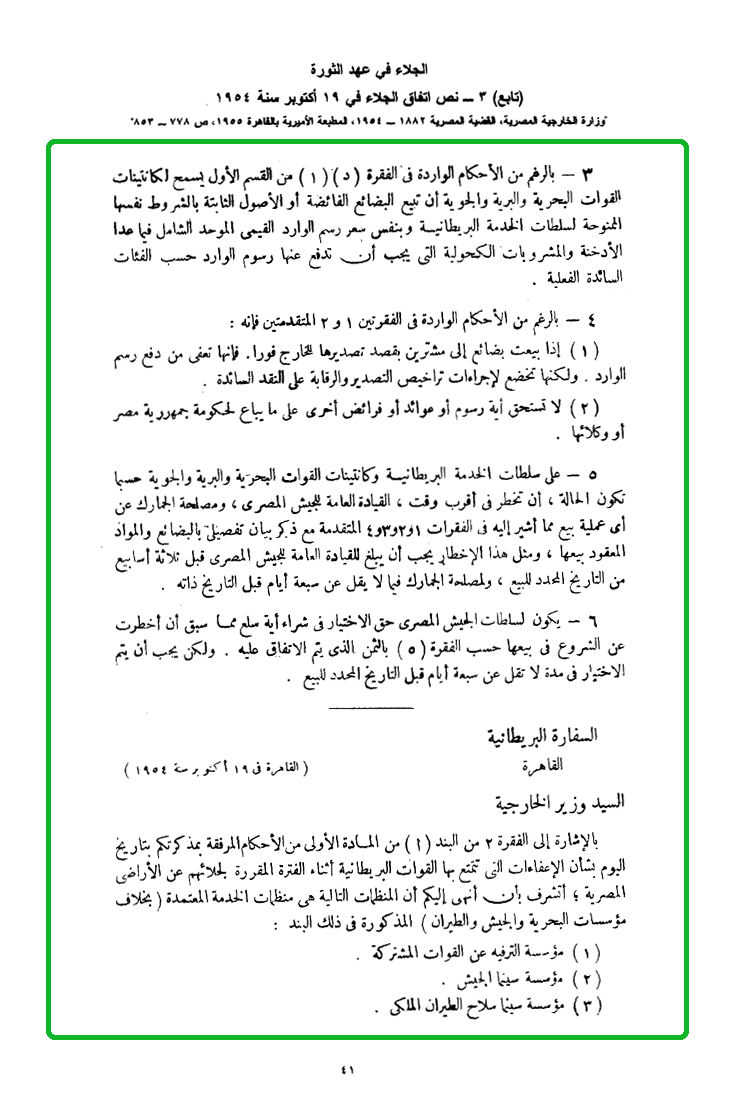 الجلاء في عهد الثورة
(تابع) ٣ ــ نص اتفاق الجلاء في ١٩ أكتوبر سنة ١٩٥٤
"وزارة الخارجية المصرية، القضية المصرية ١٨٨٢ ــ ١٩٥٤، المطبعة الأميرية بالقاهرة ١٩٥٥، ص ٧٧٨ ــ ٨٥٣"
٣ – بالرغم من الأحكام الواردة فى الفقرة (د) (١) من القسم الأول يسمح لكانتينات
القوات البحرية والبرية والجوية أن تبيع البضائع الفائضة أو الأصول الثابتة بالشروط نفسها
الممنوحة لسلطات الخدمة البريطانية وبنفس سعر رسم الوارد القيمى الموحد الشامل فيما عدا
الأدخنة والمشروبات الكحولية التى يجب أن تدفع عنها رسوم الوارد حسب الفئات
السائدة الفعلية .
٤ – بالرغم من الأحكام الواردة فى الفقرتين ١ و ٢ المتقدمتين فإنه :
(١) إذا بيعت بضائع إلى مشترين بقصد تصديرها للخارج فورا. فإنها تعفى من دفع رسم
الوارد . ولكنها تخضع لإجراءات تراخيص التصدير والرقابة على النقد السائدة .
(٢) لا تستحق أية رسوم أو عوائد أو فرائض أخرى على ما يباع لحكومة جمهورية مصر
أو وكلائها .
٥ – على سلطات الخدمة البريطانية وكانتينات القوات البحرية والبرية والجوية حسبما
تكون الحالة ، أن تخطر فى أقرب وقت ، القيادة العامة للجيش المصرى ، ومصلحة الجمارك عن
أى عملية بيع مما أشير إليه فى الفقرات ١و٢و٣و٤ المتقدمة مع ذكر بيان تفصيلى بالبضائع والمواد
المعقود بيعها ، ومثل هذا الإخطار يجب أن يبلغ للقيادة العامة للجيش المصرى قبل ثلاثة أسابيع
من التاريخ المحدد للبيع ، ولمصلحة الجمارك فيما لا يقل عن سبعة أيام قبل التاريخ ذاته .
٦ – يكون لسلطات الجيش المصرى حق الاختيار فى شراء أية سلع مما سبق أن أخطرت
عن الشروع فى بيعها حسب الفقرة (٥) بالثمن الذى يتم الاتفاق عليه . ولكن يجب أن يتم
الاختيار فى مدة لا تقل عن سبعة أيام قبل التاريخ المحدد للبيع .
السفارة البريطانية
القاهرة
(القاهرة فى ١٩ أكتوبر سنة ١٩٥٤)
السيد وزير الخارجية
بالإشارة إلى الفقرة ٢ من البند (١) من المادة الأولى من الأحكام المرفقة بمذكرتكم بتاريخ
اليوم بشأن الإعفاءات التى تتمتع بها القوات البريطانية أثناء الفترة المقررة لجلائهم عن الأراضى
المصرية ؛ أتشرف بأن أنهى إليكم أن المنظمات التالية هى منظمات الخدمة المعتمدة (بخلاف
مؤسسات البحرية والجيش والطيران) المذكورة فى ذلك البند :
(١) مؤسسة الترفيه عن القوات المشتركة .
(٢) مؤسسة سينما الجيش .
(٣) مؤسسة سينما سلاح الطيران الملكى .
٤١